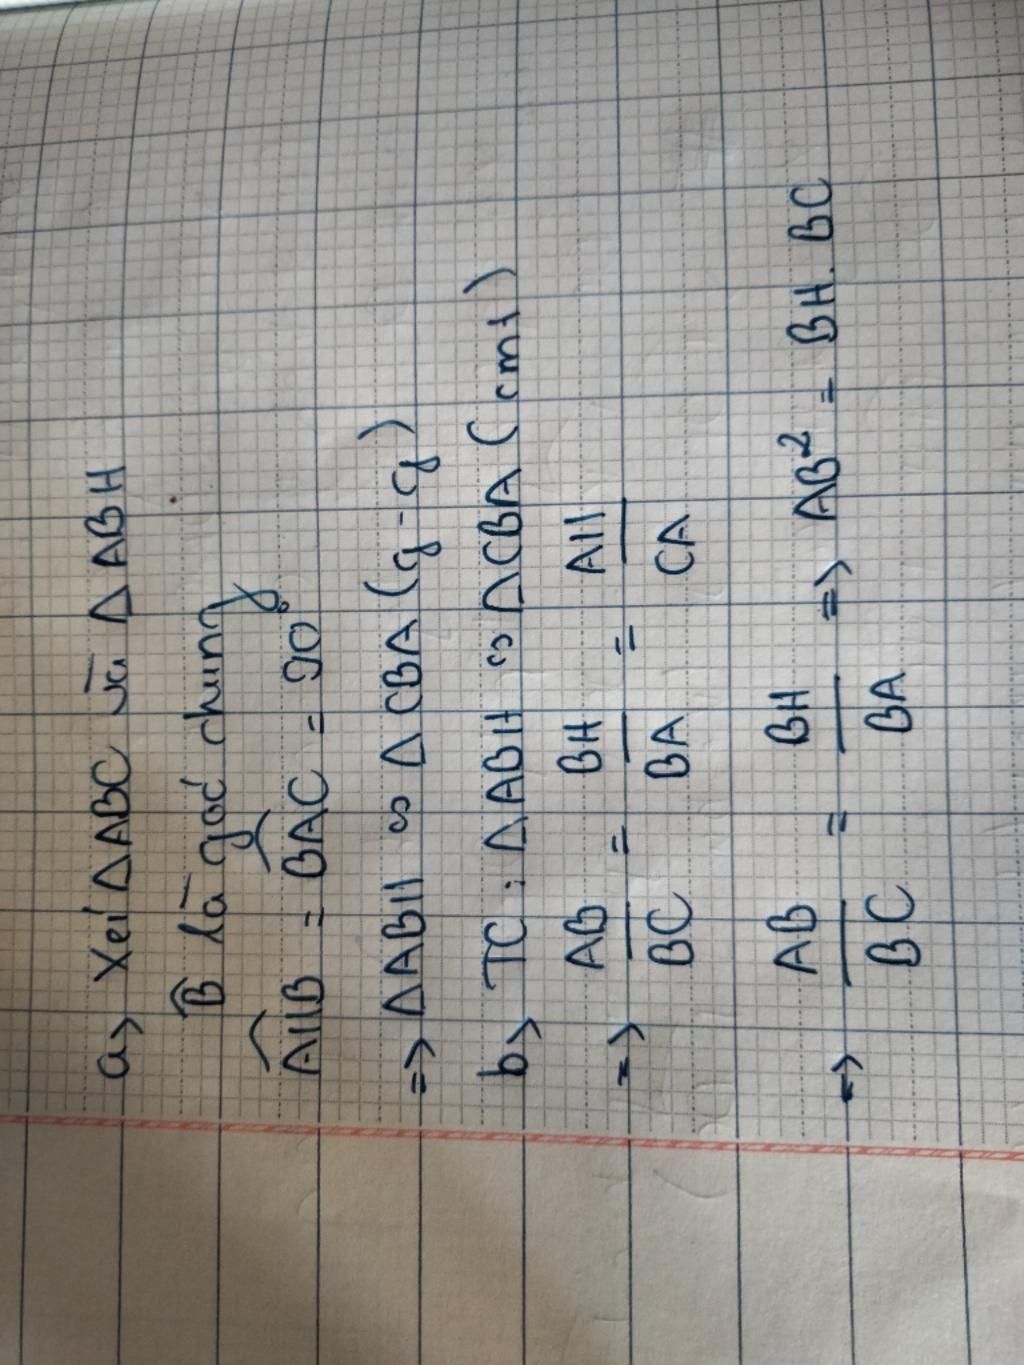 a> Xét ΔABC và ΔABH
B̂ là góc chung
\widehat{AHB} = \widehat{BAC} = 90°
=> ΔABH ∽ ΔCBA (g-g)
b> TC: ΔABH ∽ ΔCBA (cmt)
=> AB/BC = BH/BA = AH/CA
=> AB/BC = BH/BA => AB² = BH.BC